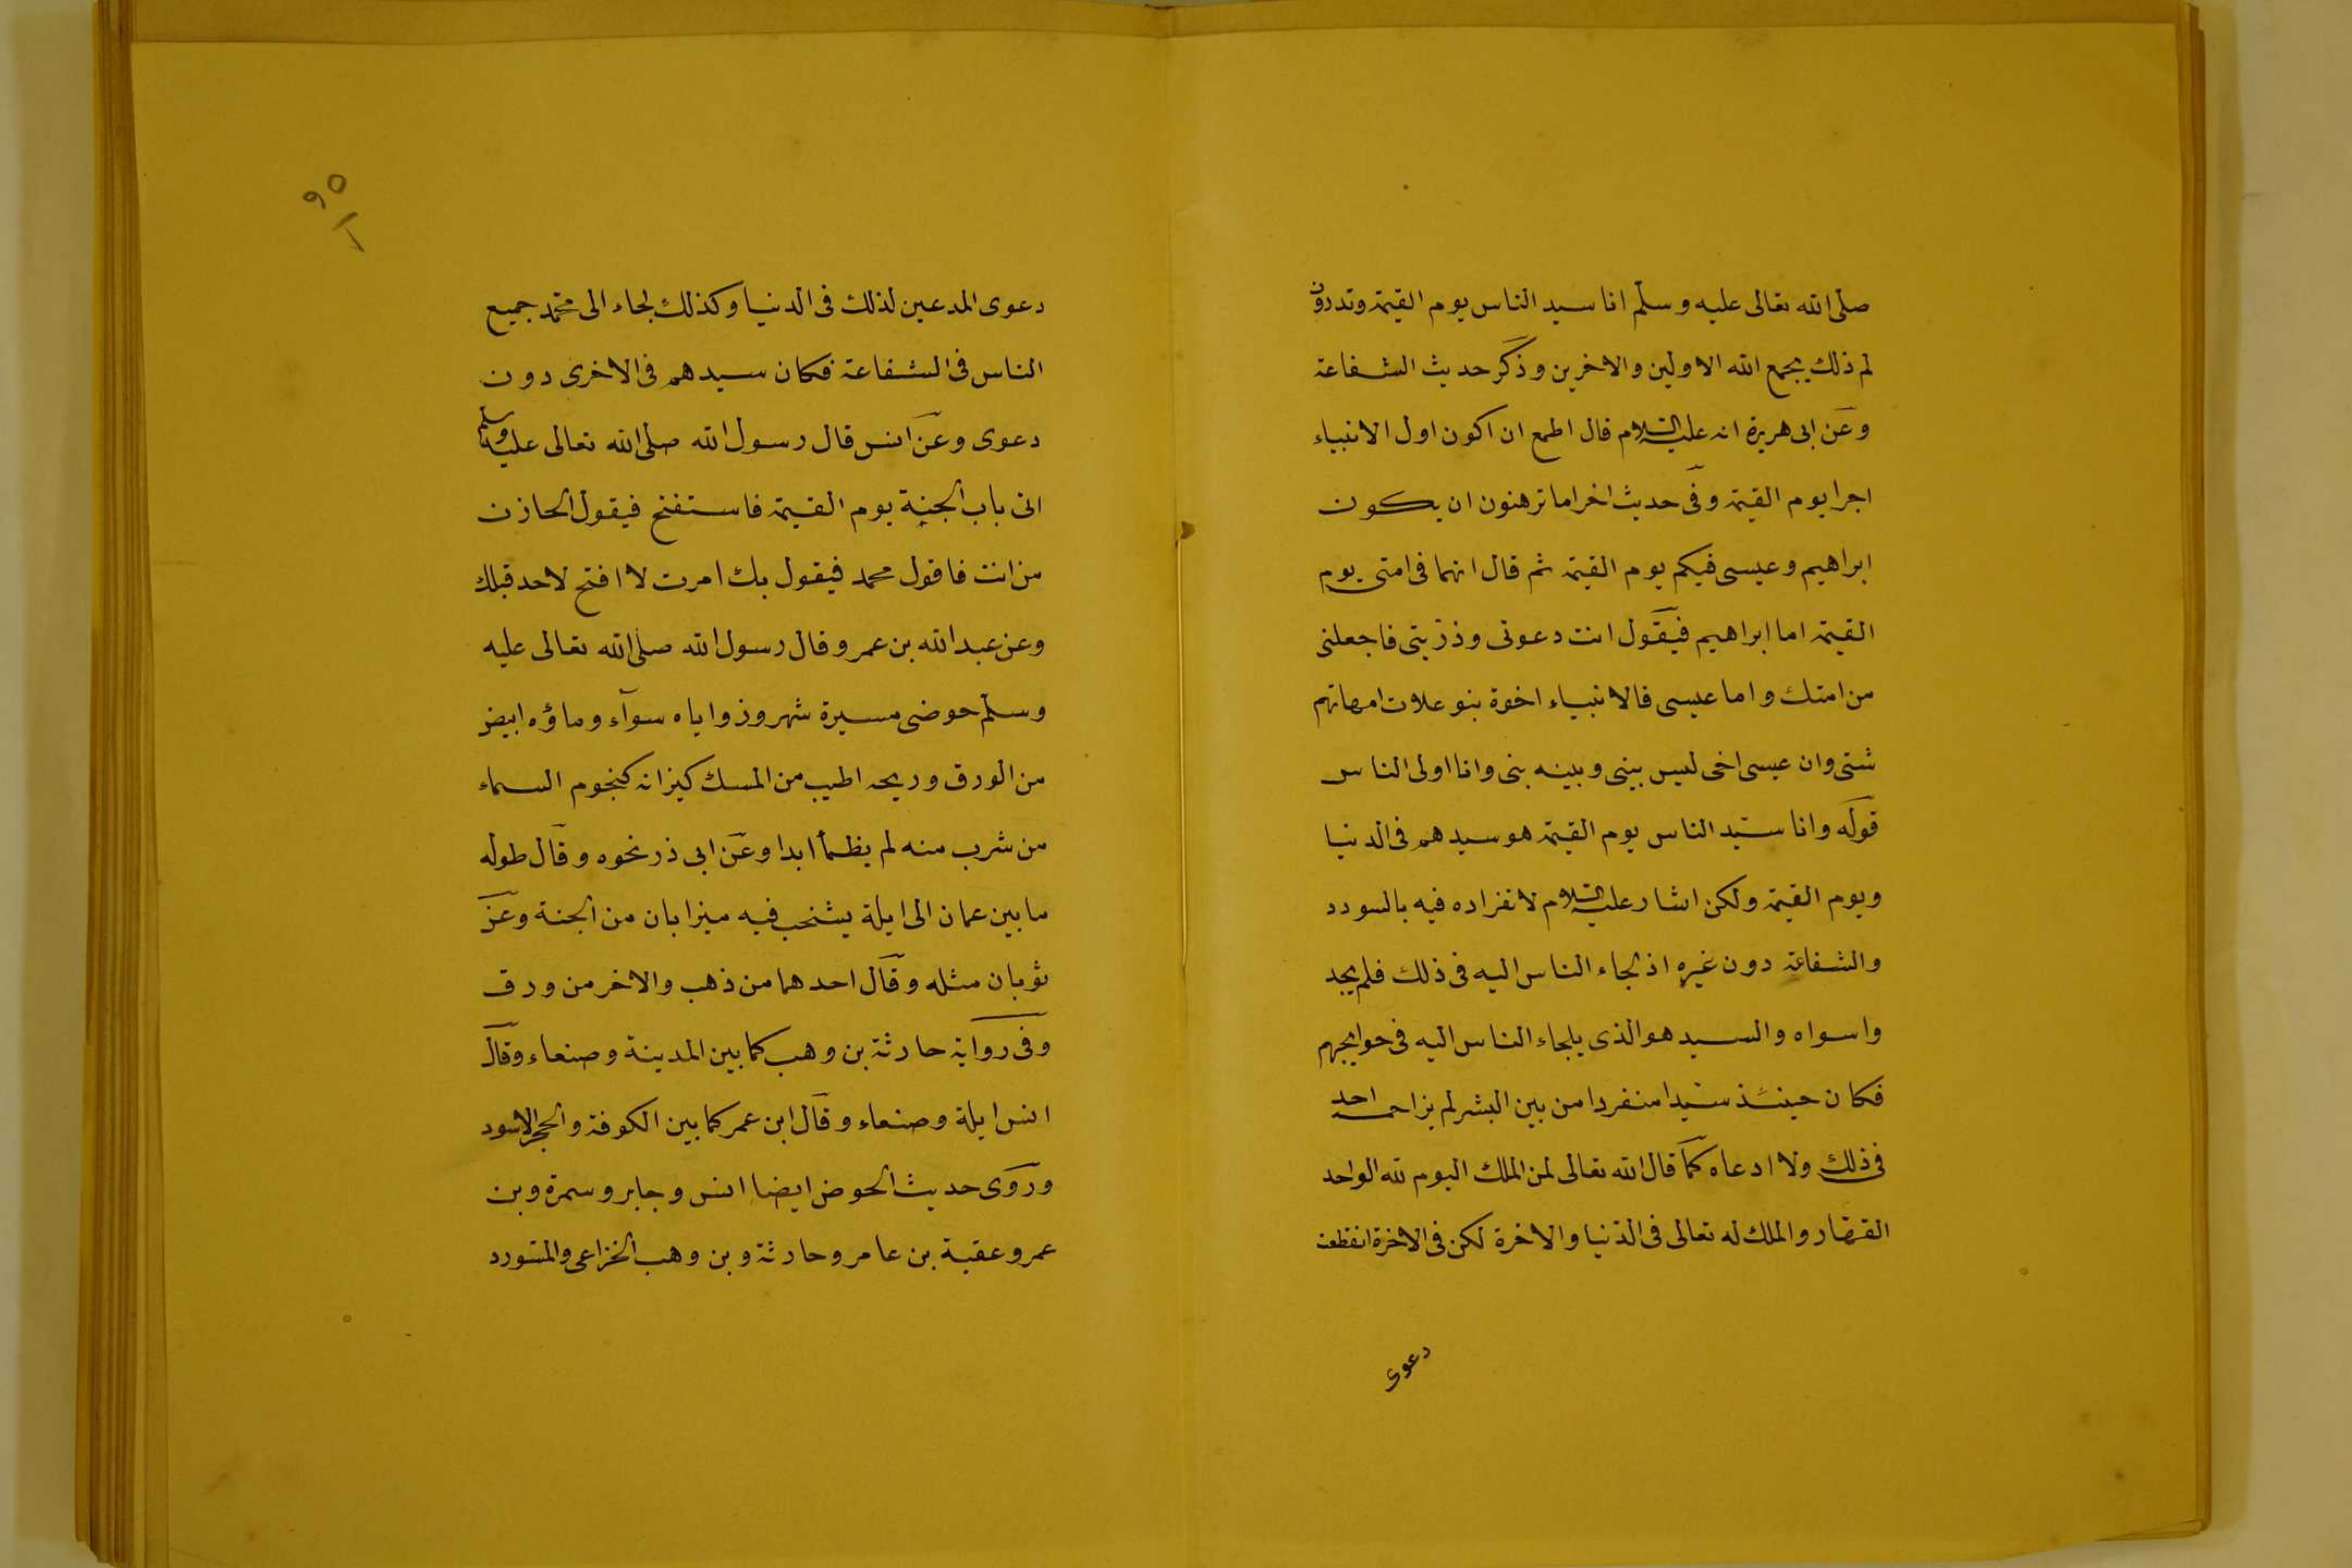 صلى الله تعالى عليه وسلم انا سيد الناس يوم القيمة وتدرون
لم ذلك يجمع الله الاولين والاخرين وذكر حديث الشفاعة
وعن ابى هريرة انه عليه السلام قال اطمع ان اكون اول الانبياء
اجرا يوم القيمة وفى حديث اخر اما ترهنون ان يكون
ابراهيم وعيسى فيكم يوم القيمة ثم قال انهما فى امتى يوم
القيمة اما ابراهيم فيقول انت دعوتى وذريتى فاجعلنى
من امتك واما عيسى فالانبياء اخوة بنو علات امهاتهم
شتى وان عيسى اخى ليس بينى وبينه بنى وانا اولى الناس
قوله وانا سيد الناس يوم القيمة هو سيدهم فى الدنيا
ويوم القيمة ولكن اشار عليه السلام لانفراده فيه بالسودد
والشفاعة دون غيره اذ لجاء الناس اليه فى ذلك فلم يجد
واسواه والسيد هو الذى يلجاء الناس اليه فى حوايجهم
فكان حينئذ سيدا منفردا من بين البشر لم يزاحمه احد
فى ذلك ولا ادعاه كما قال الله تعالى لمن الملك اليوم لله الواحد
القهار والملك له تعالى فى الدنيا والاخرة لكن فى الاخرة انقطعت
دعوى
٩٥
دعوى المدعين لذلك فى الدنيا وكذلك لجاء الى محمد جميع
الناس فى الشفاعة فكان سيدهم فى الاخرى دون
دعوى وعن انس قال رسول الله صلى الله تعالى عليه وسلم
اتى باب الجنة يوم القيمة فاستفتح فيقول الخازن
من انت فاقول محمد فيقول بك امرت لا افتح لاحد قبلك
وعن عبد الله بن عمرو قال رسول الله صلى الله تعالى عليه
وسلم حوضى مسيرة شهر وزواياه سوآء وماؤه ابيض
من الورق وريحه اطيب من المسك كيزانه كنجوم السماء
من شرب منه لم يظمأ ابدا وعن ابى ذر نحوه وقال طوله
ما بين عمان الى ايلة يشخب فيه ميزابان من الجنة وعن
ثوبان مثله وقال احدهما من ذهب والاخر من ورق
وفى رواية حارثة بن وهب كما بين المدينة وصنعاء وقال
انس ايلة وصنعاء وقال ابن عمر كما بين الكوفة والحجر الاسود
وروى حديث الحوض ايضا انس وجابر وسمرة وبن
عمر وعقبة بن عامر وحارثة وبن وهب الخزاعى والمستورد